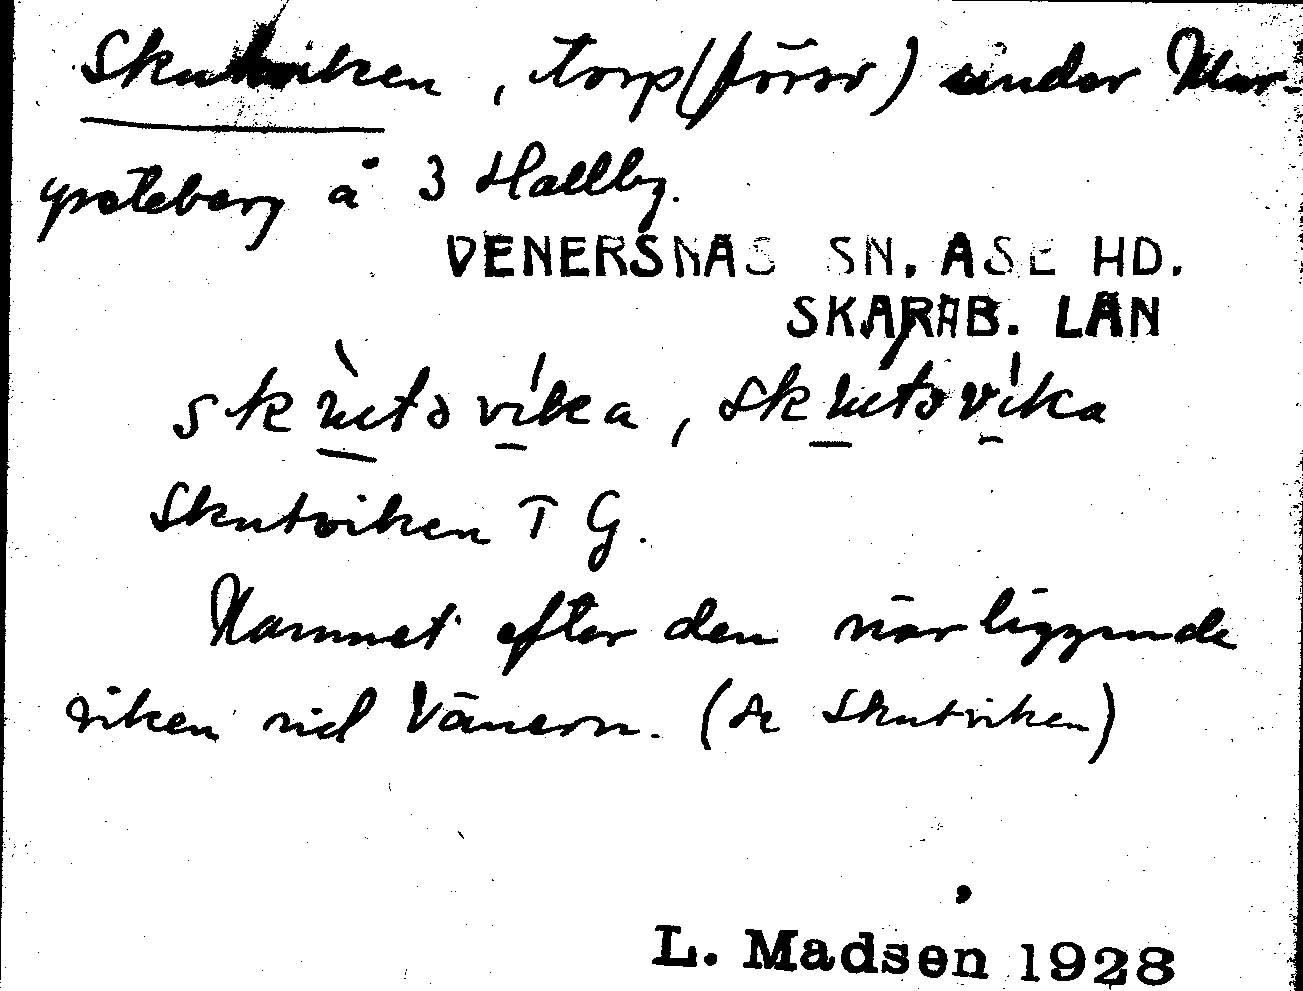 Skutviken, torp (försv) under Mar-
greteberg å 3 Hallby.
VENERSNÄS SN. ÅSE HD.
SKARAB. LÄN
skutsvika, skutsvika
Skutviken T G.
Namnet efter den närliggande
viken vid Vänern. (se Skutviken)
L. Madsen 1928